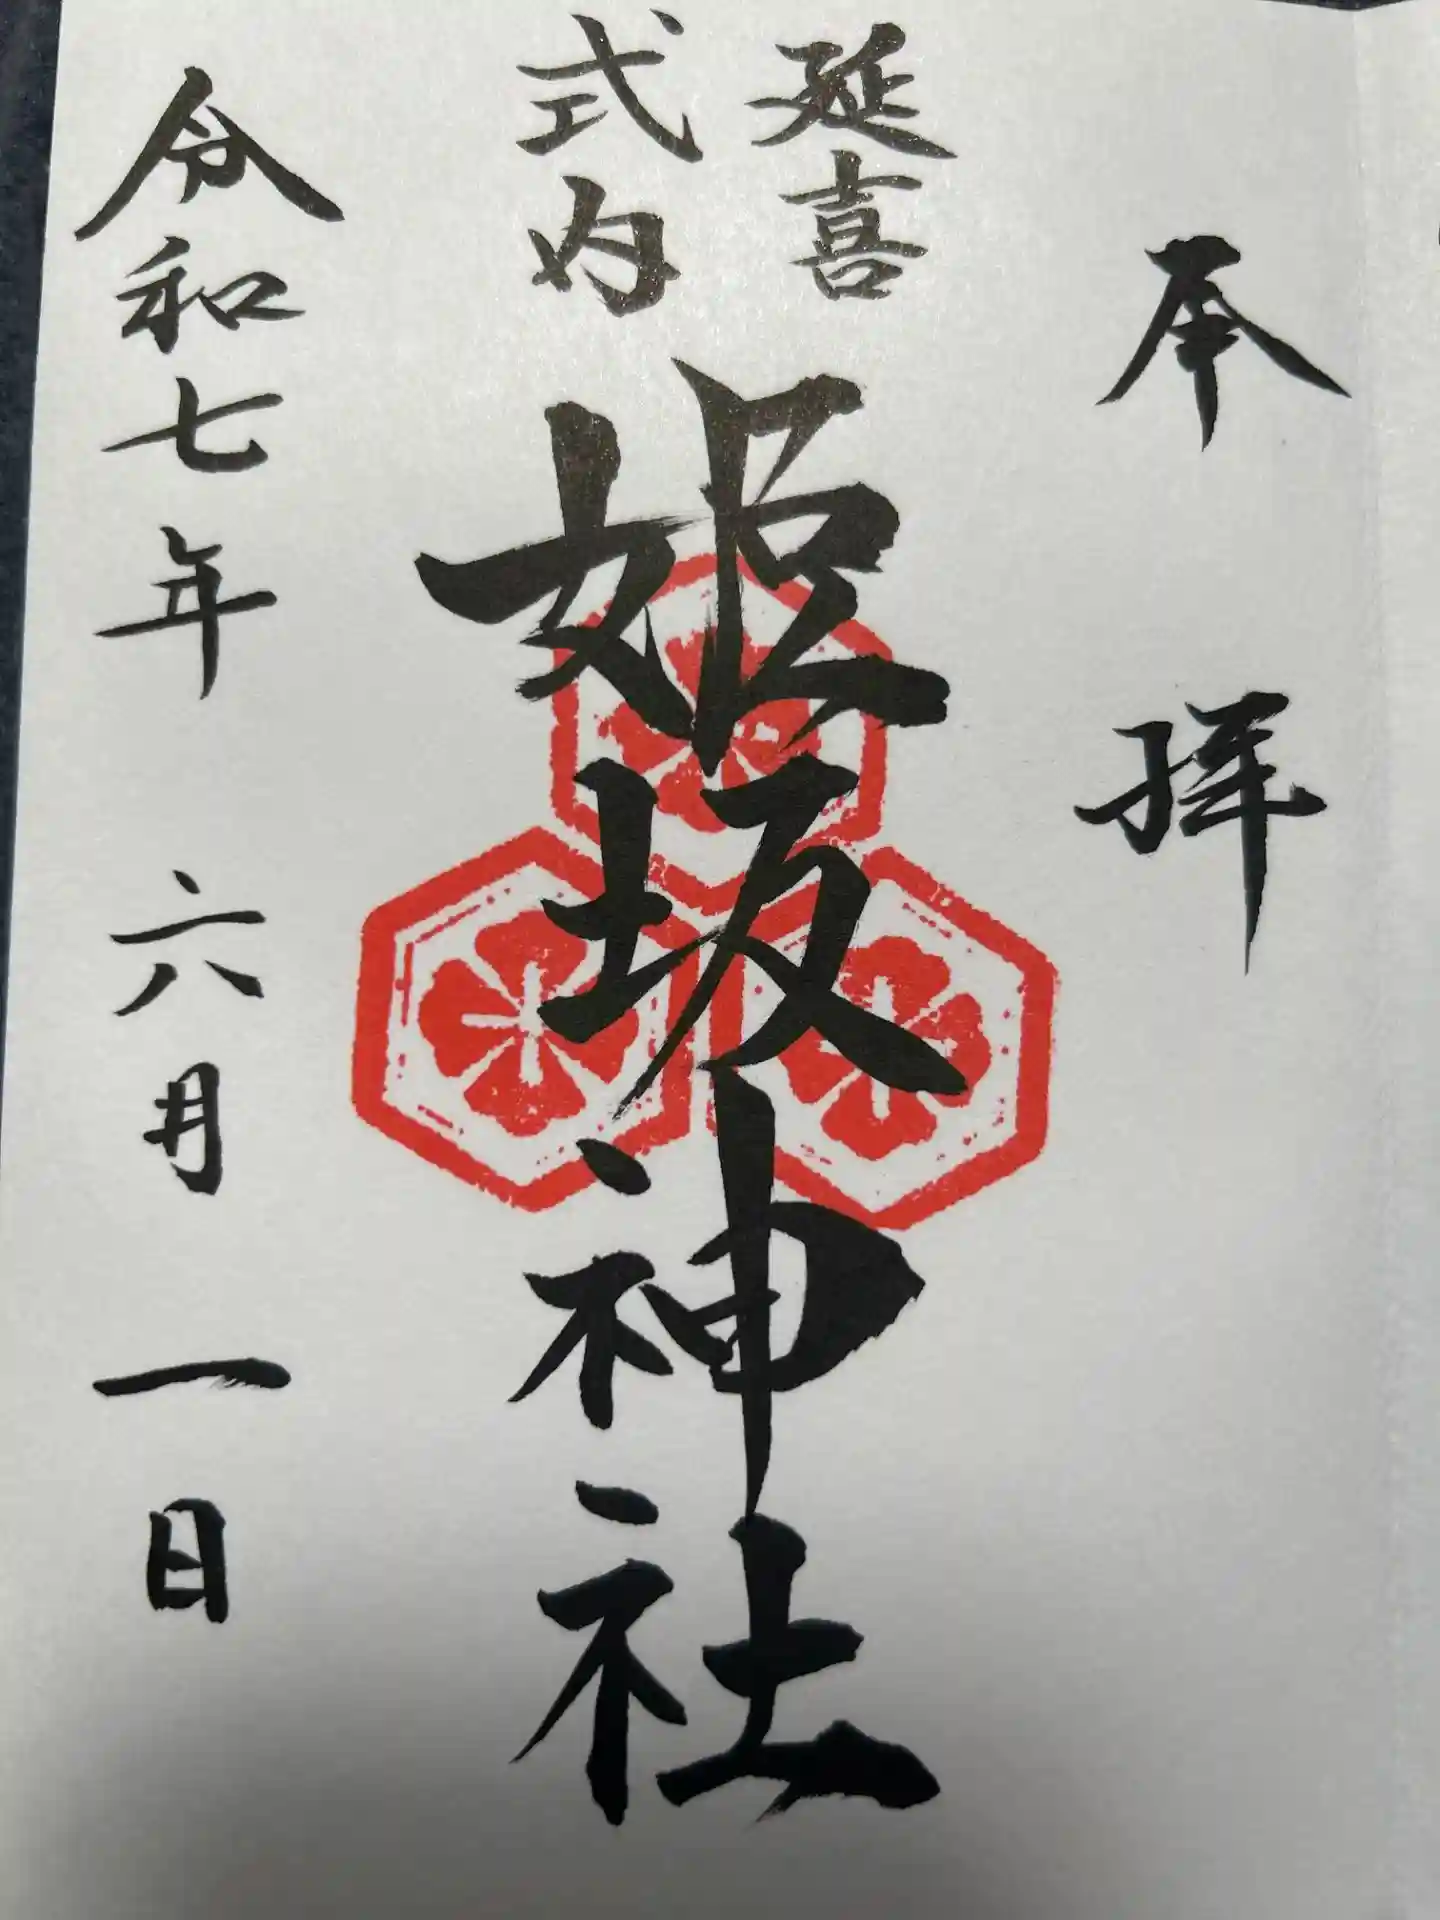 奉拝
延喜
式内
姫坂神社
令和七年六月一日